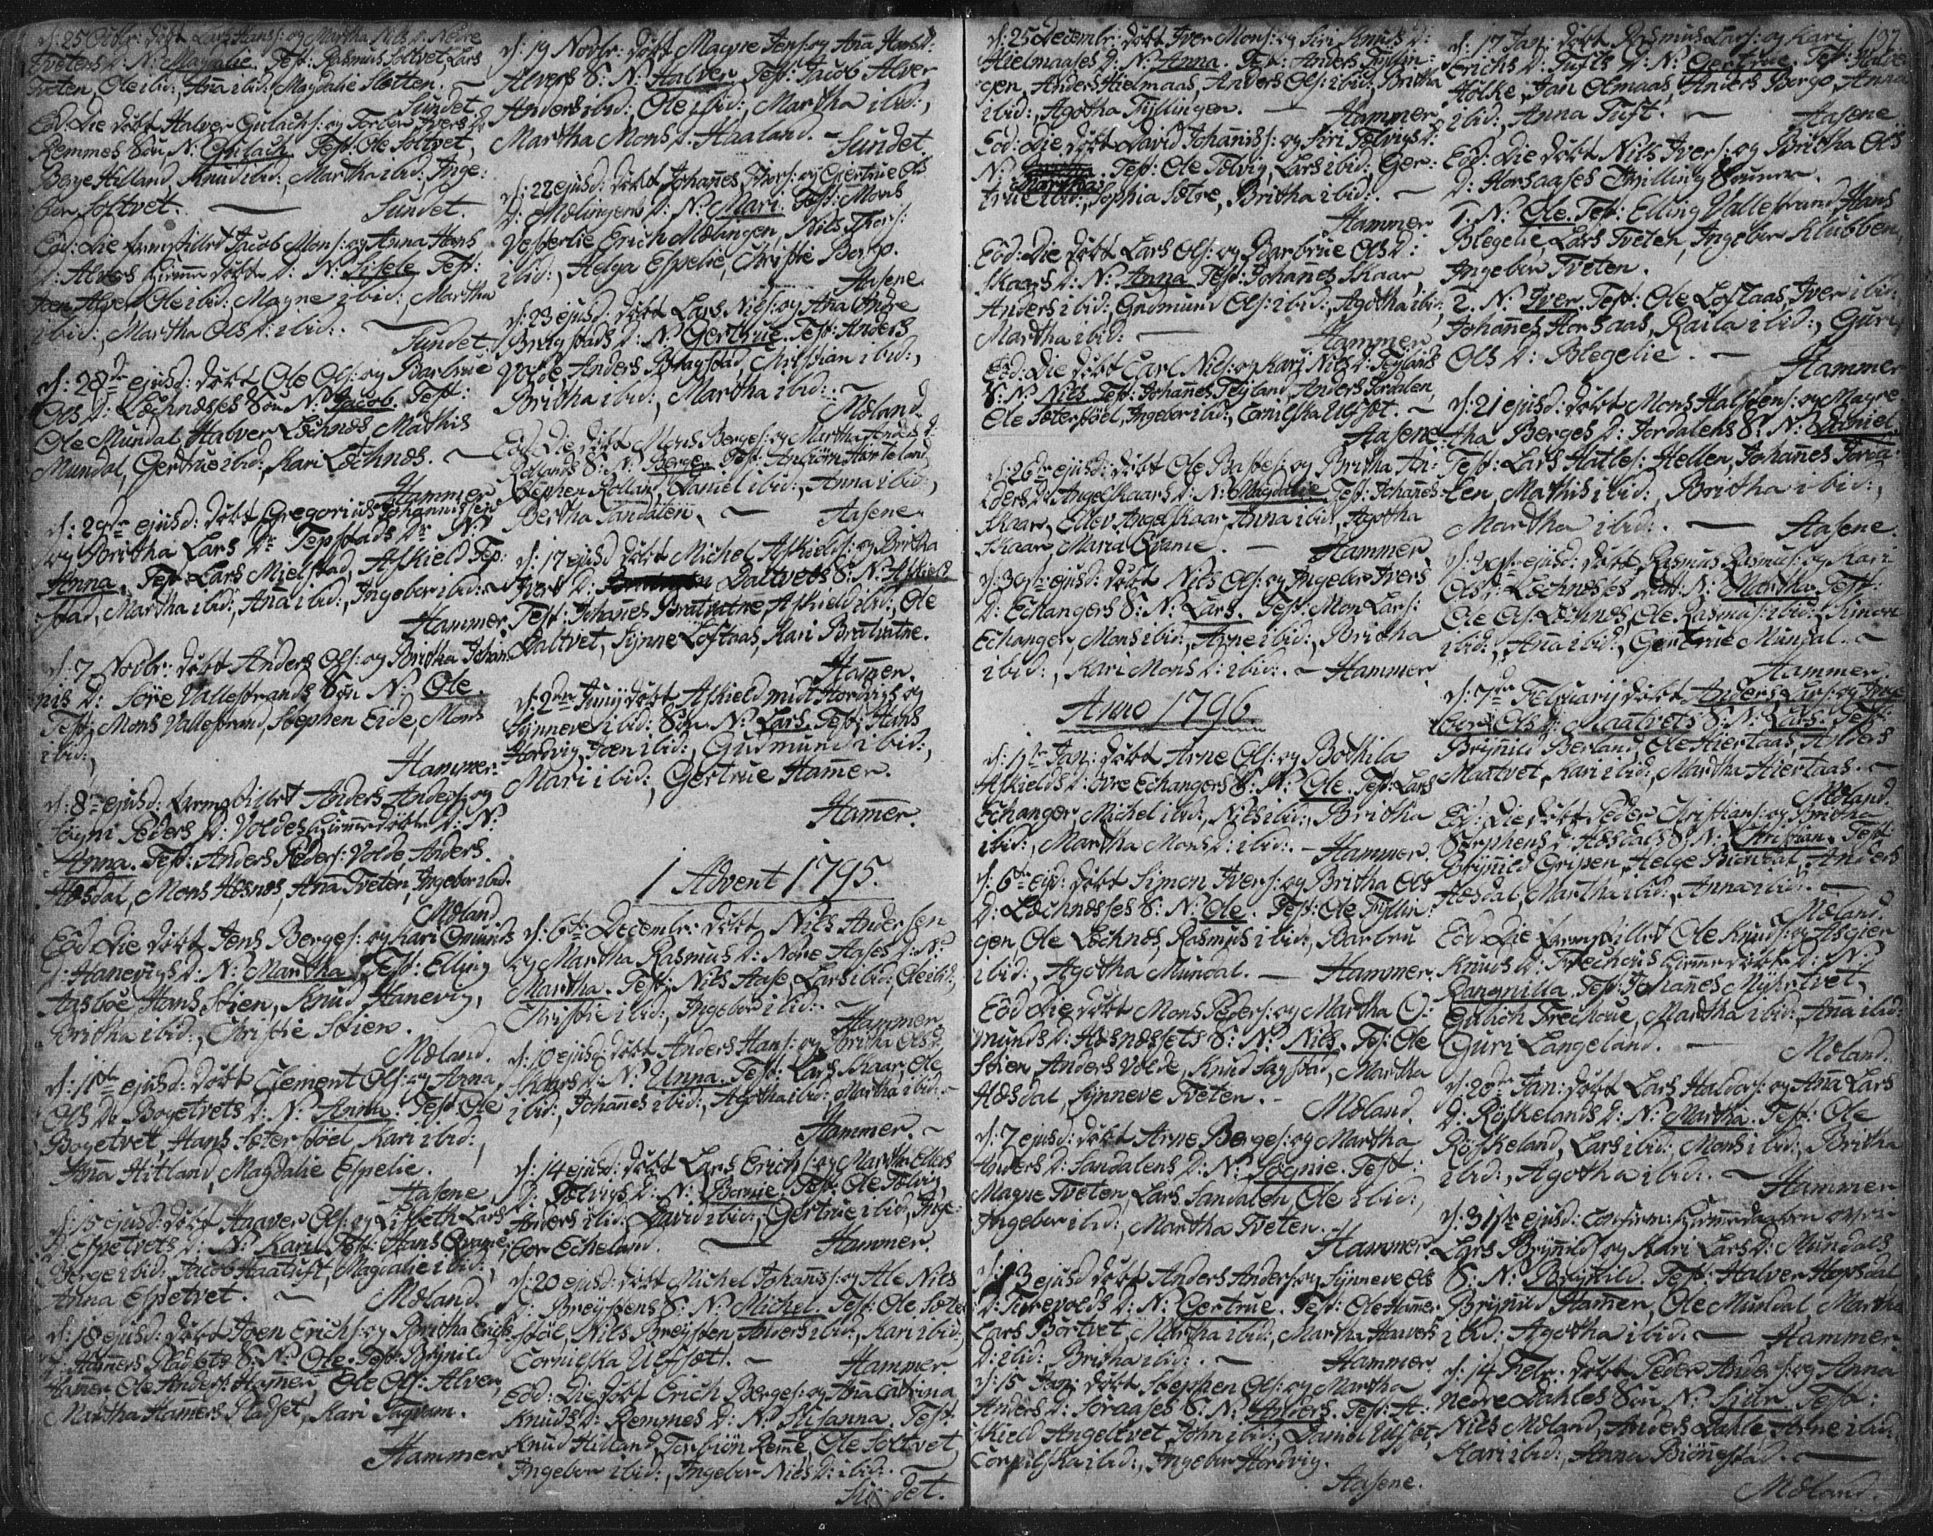 d: 25 Octbr: døbt Lars Hans: og Martha Nils D: Nedre
Tvetens D: N: Magdalie. Test: Rasmus Soltvet, Lars
Tveten, Ole ibid:, Anna ibid: Magdalie Sletten. –
Sundet.
Eod: Die døbt Halver Gulachs: og Torbor Ivers D:
Remmes Søn N: Gulach. Test: Ole Soltvet,
Berge Hilland, Knud ibid:, Martha ibid:, Inge:
bor Soltvet. – Sundet.
Eod: Die Jacob Mons: og Anna Hans
D: Alvers døbt D: N: Lisele Test:
Alver, Ole ibid:, Magne ibid:, Martha
ibid:, Martha Ols D: ibid:. – Sundet.
d: 28de ejusd: døbt Ole Ols: og Barbrue
Ols D: Løchnæsses Søn N: Jacob. Test:
Ole Mundal, Halver Løchnæs, Mathis
Mundal, Gertrue ibid:, Kari Løchnæs. –
Hammer.
d: 29de ejusd: døbt Gregorius Johannissen
og Britha Lars D: Tepstads D: N:
Anna. Test: Lars Mielstad, Askield Tep:
stad, Martha ibid:, Anna ibid:, Ingebor ibid: –
Hammer.
d: 7 Novbr: døbt Anders Ols: og Britha Johan:
nis D: Søre Vallestrands Søn N: Ole.
Test: Mons Vallestrand, Stephen Eide, Mons
ibid:,
Hammer.
d: 8de ejusd: Anders Anders: og
Peders D: Voldes døbt D: N:
Anna. Test: Anders Peders: Volde, Anders
Hæsdal, Mons Hæsnæs, Anna Tveten, Ingebor ibid.
Mæland.
Eod: Die døbt Jens Berges: og Kari Omunds
D: Hanevigs D: N: Martha. Test: Elling
Aasbøe, Hans Stien, Knud Hanevig,
Britha ibid:, Christie Stien.
Mæland.
d: 11te ejusd: døbt Clement Ols: og Anna
Ols D: Bogetvets D: N: Anna. Test: Ole
Bogetvet, Hans Sæterstøel, Kari ibid:,
Anna Hitland, Magdalie Espelie.
Aasene.
d: 15 ejusd: døbt Haaver Ols: og Lisbeth Lars
D: Espetvets D: N: Kari. Test: Hans Qvame,
Berge ibid:, Jacob Haatuft, Magdalie ibid:,
Anna Espetvet. – Mæland.
d: 18 ejusd: døbt Joen Erichs: og Britha Erichs
D: Hamers Pladsets S: N: Ole. Test: Brynild
Hamer, Ole Anders: Hamer, Ole Ols: Alver,
Martha Hamers Pladset, Kari Tagvam.
Hammer.
d: 19 Novbr: døbt Magne Jens: og Anna Haver D:
Alvers S: N: Halver. Test: Jacob Alver
Anders ibid:, Ole ibid:, Martha ibid:,
Martha Mons D: Haaland. – Sundet.
d: 22 ejusd: døbt Johannes Thors: og Gertrue Ols
D: Mælingens D: N: Mari. Test: Mons
Vesterlie, Erich Mælingen, Nils Thors:
ibid:, Helga Espelie, Christie Borge.
Aasene.
d: 23 ejusd: døbt Lars Nils: og Anna Andre
D: Bragstads D: N: Gertrue. Test: Anders
Volde, Anders Bragstad, Christian ibid:,
Britha ibid:, Martha ibid:. –
Mæland.
Eod: Die døbt Mons Berges: og Martha Anders D:
Rollands S: N: Berge. Test: Anbiørn Horteland,
Stephen Rolland, Daniel ibid:, Anna ibid:,
Bertha Sandalen. – Aasene.
d: 17 ejusd: døbt Michel Askields: og Britha
Ivers D: Daltvets S: N: Askield
Test: Johanes Bratvatne, Askield ibid:, Ole
Daltvet, Synne Loftaas, Kari Bratvatne.
Hamer.
d: 2den Junij døbt Askield midt Hordvigs og
Synneve ibid: Søn N: Lars. Test: Hans
Hordvig, Joen ibid:, Gudmund ibid:,
Mari ibid:, Gertrue Hamer.
Hamer.
1 Advent 1795.
d: 6te Decembr: døbt Nils Andersen
og Martha Rasmus D: Nore Aases D: N:
Martha. Test: Nils Aase, Lars ibid:, Ole ibid:,
Christie ibid:, Ingebor ibid:. –
Hammer.
d: 10 ejusd: døbt Anders Hans: og Britha Ols D:
Skaars D: N: Anna. Test: Lars Skaar, Ole
ibid:, Johannes ibid:, Agotha ibid:, Martha ibid:. –
Hammer. –
d: 14 ejusd: døbt Lars Erichs: og Martha Ellers
D: Tolvigs D: N: Bernie. Test: Ole Tolvig,
Anders ibid:, David ibid:, Gertrue ibid:, Inge:
bor Echeland. – Hammer.
d: 20 ejusd: døbt Michel Johans: og Ale Nils
D: Brøystens S: N: Michel. Test: Ole Sæter
støel, Nils Brøysten, Anders ibid:, Kari ibid:,
Cornilska Ulfsæt. – Hammer.
Eod: Die døbt Erich Berges: og Ana Catrina
Knuds D: Remmes D: N: Susanna. Test:
Knud Hilland, Torbiørn Reme, Ole Soltvet,
Ingebor ibid:, Ingebor Nils D: ibid:. –
Sundet.
d: 25 Decembr: døbt Iver Mons: og Siri Knuds D:
Hielmaases D: N: Anna. Test: Anders Tyllin:
gen, Anders Hielmaas, Anders Ols: ibid:, Britha
ibid:, Agotha Tyllingen. – Hammer.
Eod: Die døbt David Johannis: og Siri Tolvigs D:
N: Martha. Test: Ole Tolvig, Lars ibid:, Ger:
true ibid:, Sophia Sætre, Britha ibid:. –
Hammer.
Eod: die døbt Lars Ols: og Barbrue Ols D:
Skaars D: N: Anna. Test: Johannes Skaar
Anders ibid:, Gudmund Ols: ibid:, Agotha ibid:,
Martha ibid: – Hammer.
Eod: Die døbt Carl Nils: og Kari Nils D: Teiglands
S: N: Nils. Test: Johannes Teigland, Anders Jordalen,
Ole Sæterstøel, Ingebor ibid:, Cornilska Ulfsæt. –
Aasene.
d: 26de ejusd: døbt Ole Basses: og Britha An:
ders D: Angelskaars D: N: Magdalie. Test: Johannes
Skaar, Ellev Angelskaar, Anna ibid:, Agotha
Skaar, Maria Qvame. – Hammer.
d: 30de ejusd: døbt Nils Ols: og Ingebor Ivers
D: Echangers S: N: Lars. Test: Mon Lars:
Echanger, Mons ibid:, Arne ibid:, Britha
ibid:, Kari Mons D: ibid:. – Hammer.
Anno 1796.
d: 1te Jan: døbt Arne Ols: og Bothila
Askields D: Øvre Echangers S: N: Ole. Test: Lars
Echanger, Michel ibid:, Nils ibid:, Britha
ibid:, Martha Mons D: ibid:. – Hammer.
d: 6te ejusd: døbt Simon Ivers: og Britha Ols
D: Løchnæsses S: N: Ole. Test: Ole Tyllin:
gen, Ole Løchnæs, Rasmus ibid:, Barbru
ibid:, Agotha Mundal. – Hammer.
Eod: Die døbt Mons Peders: og Martha O:
munds D: Hæsnæssets S: N: Nils. Test: Ole
Stien, Anders Volde, Knud Sagstad, Martha
Hæsdal, Synneve Tveten. – Mæland.
d: 7 ejusd: døbt Arne Berges: og Martha
Anders D: Sandalens D: N: Sognie. Test:
Magne Tveten, Lars Sandalen, Ole ibid:,
Ingebor ibid:, Martha Tveten. –
Hammer.
d: 13 ejusd: døbt Anders Anders: og Synneve Ols
D: Turrevolds D: N: Gertrue. Test: Ole Hamer
Lars Børtvet, Martha ibid:, Martha Haavers
D: ibid:, Britha ibid:. – Hammer.
d: 15 Jan: døbt Stephen Ols: og Martha
Anders D: Soraases S: N: Anders. Test: A:
skield Angeltvet, John ibid:, Daniel Ulfsæt,
Cornilska ibid:, Ingebor Hordvig.
Aasene.
197
d: 17 Jan: døbt Rasmus Lars: og Kari
Erichs D: Tufts D: N: Gertrue. Test: Halver
Holke, Jan Olmaas, Anders Borge, Anna
ibid:, Anna Tuft. – Aasene.
Eod: Die døbt Nils Ivers: og Britha Ols
D: Horsaases Tvilling Sønner.
1. N: Ole. Test: Elling Vallestrand, Hans
Blegelie, Lars Tveten, Ingebor Klubben,
Ingebor Tveten.
2. N: Iver. Test: Ole Loftaas, Iver ibid:
Johannes Horsaas, Raila ibid:, Guri
Ols D: Blegelie. –
Hammer.
d: 21 ejusd: døbt Mons Halstens: og Magre:
tha Berges D: Jordalens S: N: Daniel.
Test: Lars Hatles: Hellen, Johannes Jorda:
len, Mathis ibid:, Britha ibid:,
Martha ibid:. – Aasene.
ejusd: døbt Rasmus Rasmus: og Kari
Ols D: Løchnæsses D: N: Martha. Test:
Ole Ols: Løchnæs, Ole Rasmus: ibid:, Simon
ibid:, Anna ibid:, Gertrue Mundal. –
Hammer.
d: 7de Februarij døbt Anders Lars: og Inge
bor Ols D: Maatvets S: N: Lars. Test:
Brynild Berland, Ole Hiertaas, Anders
Maatvet, Kari ibid:, Martha Hiertaas. –
Mæland.
Eod: Die døbt Peder Christians: og Britha
Stephens D: Hæsdals S: N: Christian. Test:
Brynnild Gripen, Helge Biondal, Anders
Hæsdal, Martha ibid:, Anna ibid:. –
Mæland.
Eod: Die Ole Knuds: og Asgier
Knuds D: døbt D: N:
Rangnilla. Test: Johanes Myhrtvet,
Gulich, Martha ibid:, Ana ibid:
Guri Langeland. – Mæland.
d: 20de Jan: døbt Lars Haldors: og Anna Lars
D: Røskelands D: N: Martha. Test: Ole
Røskeland, Lars ibid:, Mons ibid:, Britha
ibid:, Agotha ibid:. – Hammer.
d: 31te ejusd: over
Lars Brynilds: og Kari Lars D: Mundals
S: N: Brynild. Test: Halver Hopsdal
Brynild Hamer, Ole Mundal, Martha
ibid:, Agotha ibid:. – Hammer.
d: 14 Febr: døbt Peder Anders: og Anna
nedre Dahles Søn N: Test:
Nils Mæland, Anders Dahle, Arne ibid:,
Kari ibid:, Anna Biørgstad. –
Mæland.